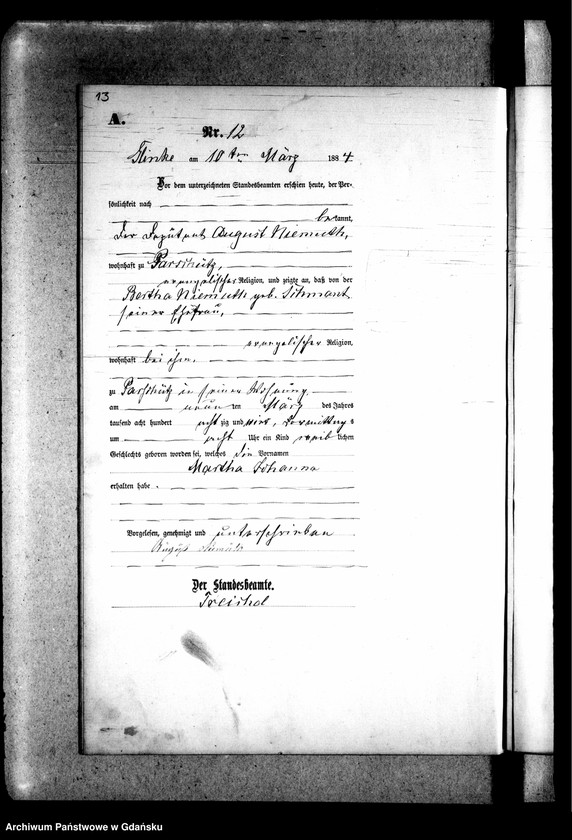 13
A.
Nr. 12
am 10 ten März 1884.
Vor dem unterzeichneten Standesbeamten erschien heute, der Per-
sönlichkeit nach
bekannt,
der Deputant August Niemuth,
wohnhaft zu Parschütz,
evangelischer Religion, und zeigte an, daß von der
Bertha Niemuth geb.
seiner Ehefrau,
evangelischer Religion,
wohnhaft bei ihm,
zu Parschütz in seiner Wohnung,
am neun ten März des Jahres
tausend acht hundert acht zig und vier, Vormittags
um acht Uhr ein Kind weib lichen
Geschlechts geboren worden sei, welches die Vornamen
Martha Johanna
erhalten habe.
Vorgelesen, genehmigt und unterschrieben
August Niemuth
Der Standesbeamte.
Archiwum Państwowe w Gdańsku